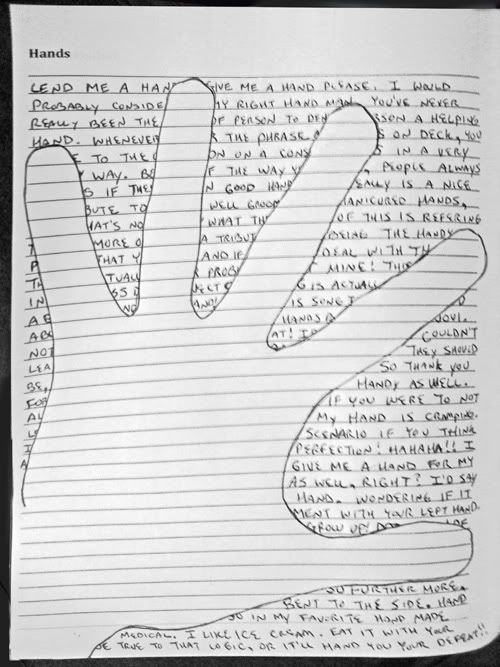 Hands
LEND ME A HAN GIVE ME A HAND PLEASE. I WOULD
PROBABLY CONSIDE MY RIGHT HAND MAN YOU'VE NEVER
REALLY BEEN THE OF PERSON TO DEN RSON A HELPING
HAND. WHENEVER THE PHRASE A S ON DECK, YOU
E TO THE ON ON A CONS S IN A VERY
WAY. BE F THE WAY Y PEOPLE ALWAYS
S IF THE N GOOD HAND EALLY IS A NICE
BUTE TO WELL GROOM MANICURED HANDS,
HAT'S NO WHAT TH OF THIS IS REFERING
MORE O A TRIBUT BEING THE HANDY
THAT Y AND IF DEAL WITH TH
TUALL PROB MINE! THIS
TH ECT G IS ACTUAL
IN AND! NO IS SONG
AE HANDS OVI.
ABO AT! COULDN'T
NOT THEY SHOULD
LEA SO THANK YOU
BE, HANDY AS WELL.
FOR IF YOU WERE TO NOT
AL MY HAND IS CRAMPING.
SCENARIO IF YOU THINK
I PERFECTION! HAHAHA!! I
A GIVE ME A HAND FOR MY
AS WELL, RIGHT? I'D SAY
HAND. WONDERING IF IT
MENT WITH YOUR LEFT HAND.
GROW UP!
FURTHER MORE.
BENT TO THE SIDE. HAND
SO IN MY FAVORITE HAND MADE
MEDICAL. I LIKE ICE CREAM. EAT IT WITH YOUR
BE TRUE TO THAT LOGIC, OR IT'LL HAND YOU YOUR DEFEAT!!